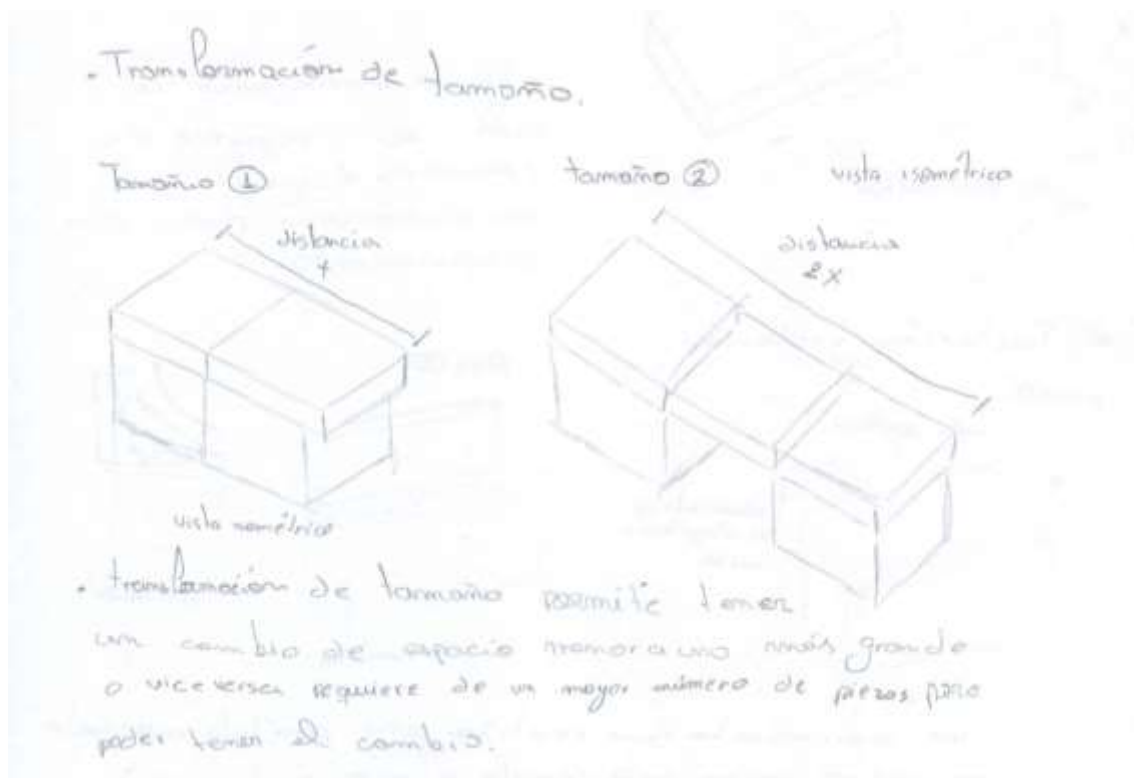 • Transformación de tamaño.
Tamaño ①
tamaño ②
vista isométrica
distancia
x
distancia
2x
vista isométrica
• transformación de tamaño permite tener
un cambio de espacio menor a uno más grande
o viceversa requiere de un mayor número de piezas para
poder tener el cambio.